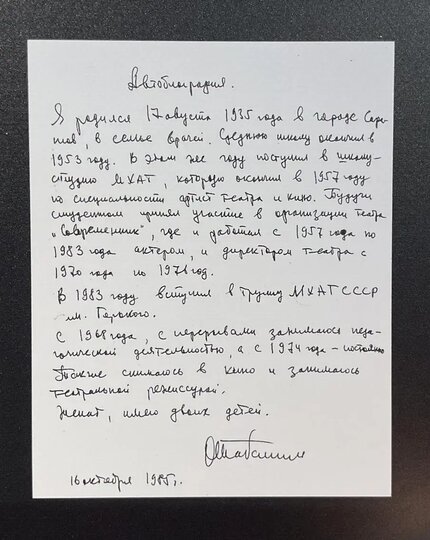 Автобиография.
Я родился 17 августа 1935 года в городе Сара-
тов, в семье врачей. Среднюю школу окончил в
1953 году. В этом же году поступил в школу-
студию МХАТ, которую окончил в 1957 году
по специальности артист театра и кино. Будучи
студентом принял участие в организации театра
„Современник", где и работал с 1957 года по
1983 года актером, и директором театра с
1970 года по 1976 год.
В 1983 году вступил в труппу МХАТ СССР
им. Горького.
С 1968 года, с перерывами занимаюсь педа-
гогической деятельностью, а с 1974 года – постоянно
Также снимаюсь в кино и занимаюсь
театральной режиссурой.
Женат, имею двоих детей.
ОТабаков
16 октября 1985 г.